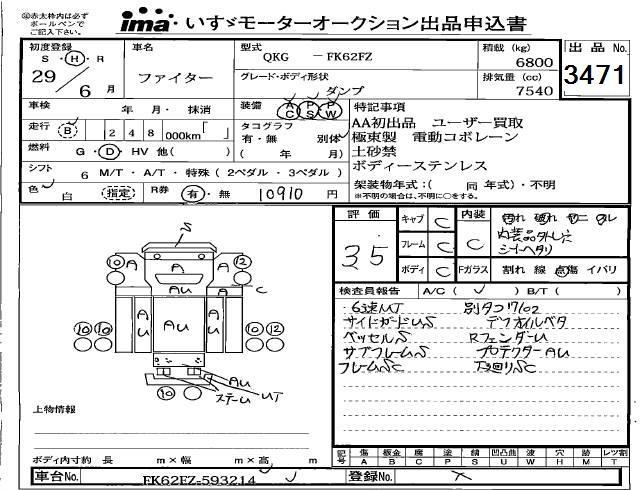 ◎赤太枠内は必ず
ボールペンで
ご記入下さい。
ima いすゞモーターオークション出品申込書
初度登録
S ・ H ・ R
29 6 月
車名
ファイター
型式
QKG － FK62FZ
グレード・ボディ形状
ダンプ
積載 (kg)
6800
排気量 (cc)
7540
出品 No.
3471
車検 年 月・ 抹消
走行 B 2 4 8 000km「 」
燃料 G ・ D ・ HV 他( )
シフト 6 M/T ・ A/T ・ 特殊 ( 2ペダル ・ 3ペダル )
色 白 指定 R券 有 ・ 無 10910 円
装備 AC PS PW
タコグラフ
有・無 別体
( 年 月)
特記事項
AA初出品 ユーザー買取
極東製 電動コボレーン
土砂禁
ボディーステンレス
架装物年式:( 同 年式)・不明
※不明の場合は、不明に○をする。
評価
3.5
キャブ C
フレーム C
ボディ C
内装 C
Fガラス 割れ 線 点傷 イバリ
内装品外し穴
シートヘタリ
検査員報告 A/C ( ✓ ) B/T ( )
6速MT
サイドガードUS デフオイルベタ
ベッセルS RフェンダーU
サブフレームS プロテクターAU
フレームSC 下廻りSC
S
10 A A A 12
A AU A C
AU AU AU
10 10 10 12
10
AU
ステーU UT
上物情報
ボディ内寸約 長 m×幅 m×高 m
記号 傷 A 鈑金 B 腐 C 塗 P 錆 S 凹凸曲 U 波 W 穴 H 跡 M レンズ割 T
車台No. FK62FZ-593214
登録No.